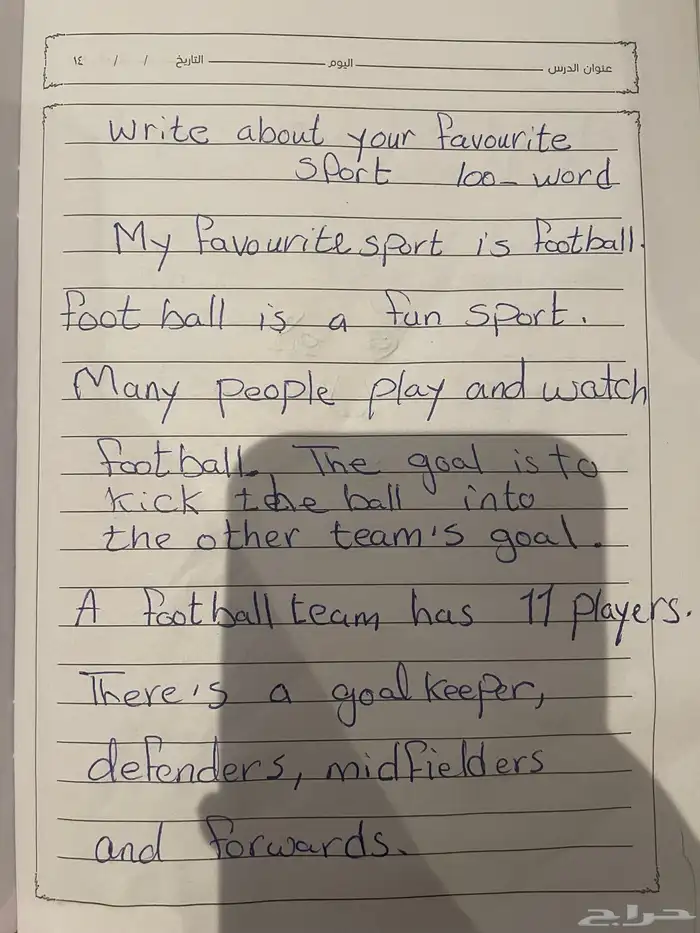 عنوان الدرس اليوم التاريخ / / ١٤
Write about your favourite
sport 100_ word
My favourite sport is football.
foot ball is a fun sport.
Many people play and watch
football. The goal is to
kick the ball into
the other team's goal.
A football team has 11 players.
There's a goal keeper,
defenders, midfielders
and forwards.
حراج